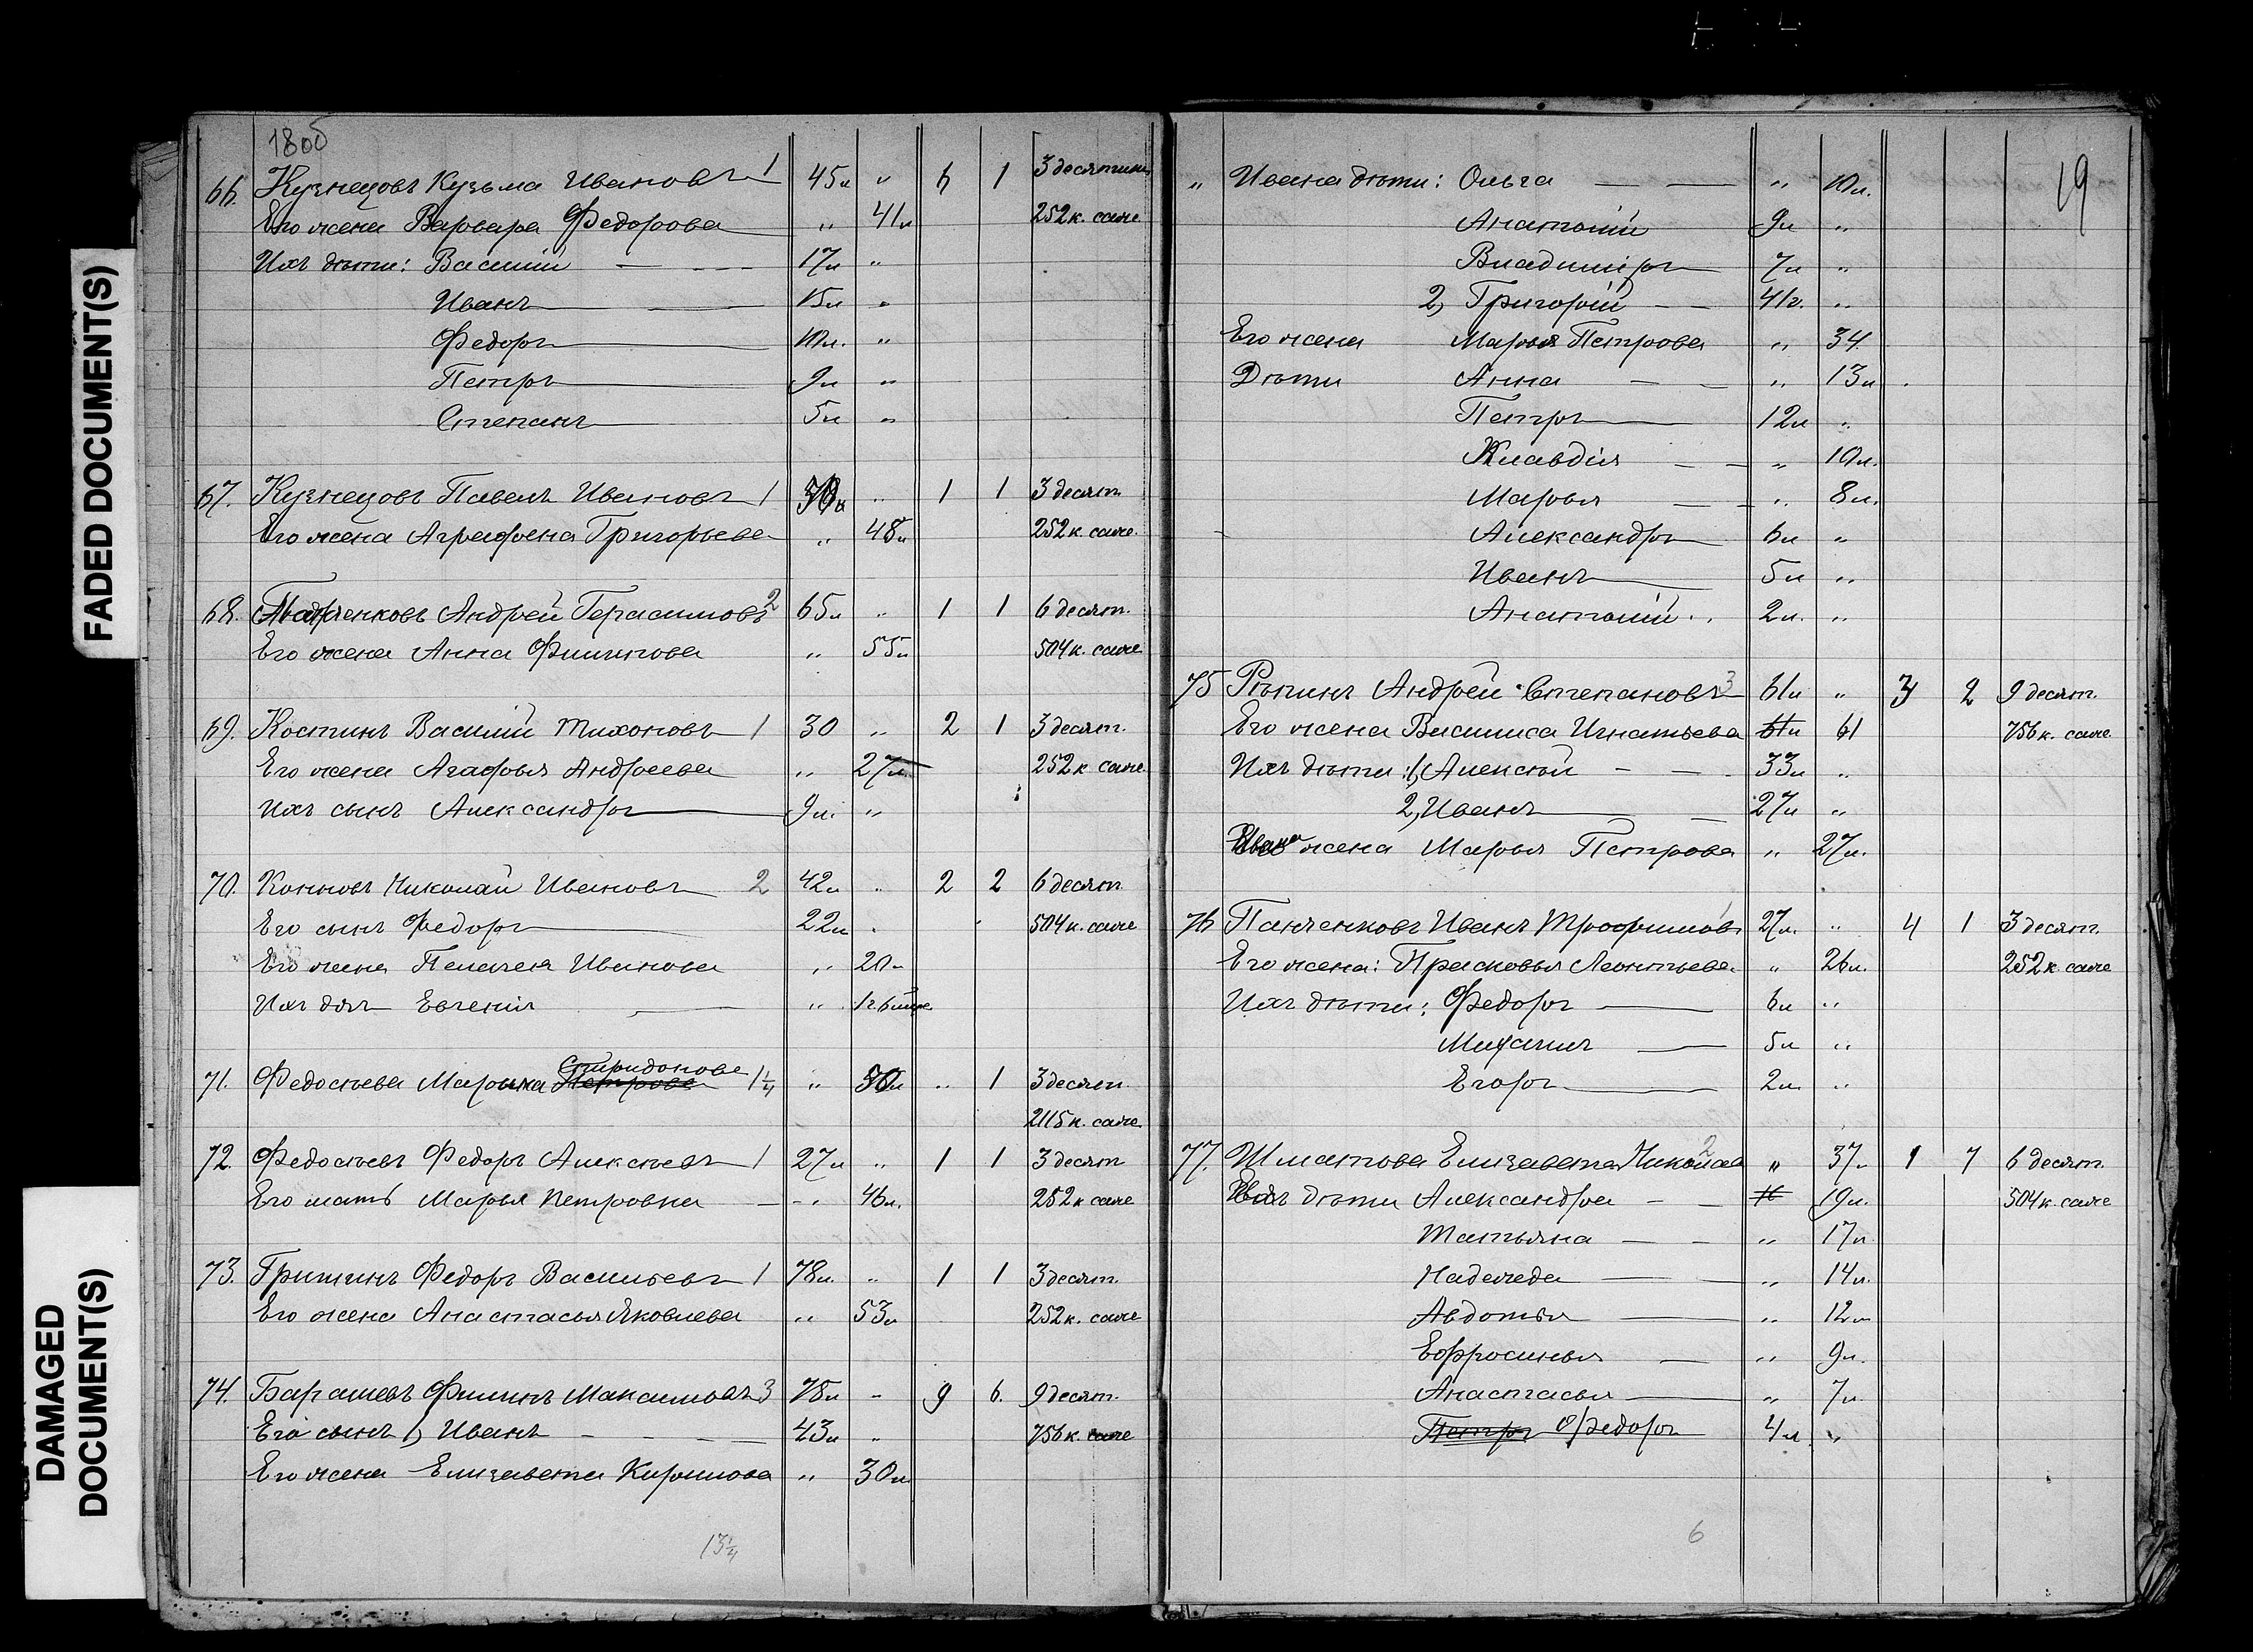 FADED DOCUMENT(S)
DAMAGED DOCUMENT(S)
18об
66. Кузнецовъ Кузьма Ивановъ 1 45л " 6 1 3 десятин
Его жена Варвара Федорова " 41л 252 к. саже
Ихъ дѣти: Василій 17л "
Иванъ 15л "
Федоръ 10л. "
Петръ 9л "
Степанъ 5л "
67. Кузнецовъ Павелъ Ивановъ 1 " 1 1 3 десят
Его жена Аграфена Григорьева " 48л 252 к. саже.
68. Андрей Герасимовъ 2 65л " 1 1 6 десят.
Его жена Анна Филипова " 55л 504 к. саже
69. Костинъ Василій Тихоновъ 1 30 " 2 1 3 десят.
Его жена Агафья Андреева " 27л. 252 к саже
Ихъ сынъ Александръ 9л. "
70. Конновъ Николай Ивановъ 2 42л " 2 2 6 десят
Его сынъ Федоръ 22л " 504 к. саже
Его жена Пелагея Иванова " 20л
Ихъ доч Евгенія "
71. Федосѣева Марья Спиридонова Петрова 1¼ " 50л " 1 3 десят.
2115 к. саже
72. Федосѣевъ Федоръ Алексѣевъ 1 27л " 1 1 3 десят
Его мать Марья Петровна " 46л. 252 к саже
73. Гришинъ Федоръ Васильевъ 1 78л. " 1 1 3 десят.
Его жена Анастасья Яковлева " 53л 252 к. саже
74. Барашевъ Филипъ Максимовъ 3 78л " 9 6. 9 десят.
Его сынъ 1) Иванъ 43л " 756 к. саже
Его жена Елизавета Кирилова " 30л
13¼
19
" Ивана дѣти: Ольга " 10л.
Анатолій 9л "
Владиміръ 7л "
2) Григорій 41г. "
Его жена Марья Петрова " 34
Дѣти Анна " 13л
Петръ 12л "
Клавдія " 10л.
Марья " 8л.
Александръ 6л "
Иванъ 5л "
Анатолій 2л. "
75 Рѣпинъ Андрей Степановъ 3 61л " 3 2 9 десят.
Его жена Василиса Игнатьева 61л 61 756 к. саже
Ихъ дѣти: 1, Алексѣй 33л "
2, Иванъ 27л "
Ивана жена Марья Петрова " 27л.
76 Панченковъ Иванъ Трофимовъ 27л. " 4 1 3 десят.
Его жена: Прасковья Леонтьева " 26л. 252 к. саже
Ихъ дѣти: Федоръ 6л "
Михаилъ 5л "
Егоръ 2л. "
77. Шматова Елизавета Николаев 2 " 37л 1 7 6 десят.
дѣти Александра 19л. 504 к. саже
Татьяна " 17л
Надежда " 14л.
Авдотья " 12л
Ефросинья " 9л.
Анастасья " 7л.
Петръ Федоръ 4л. "
6